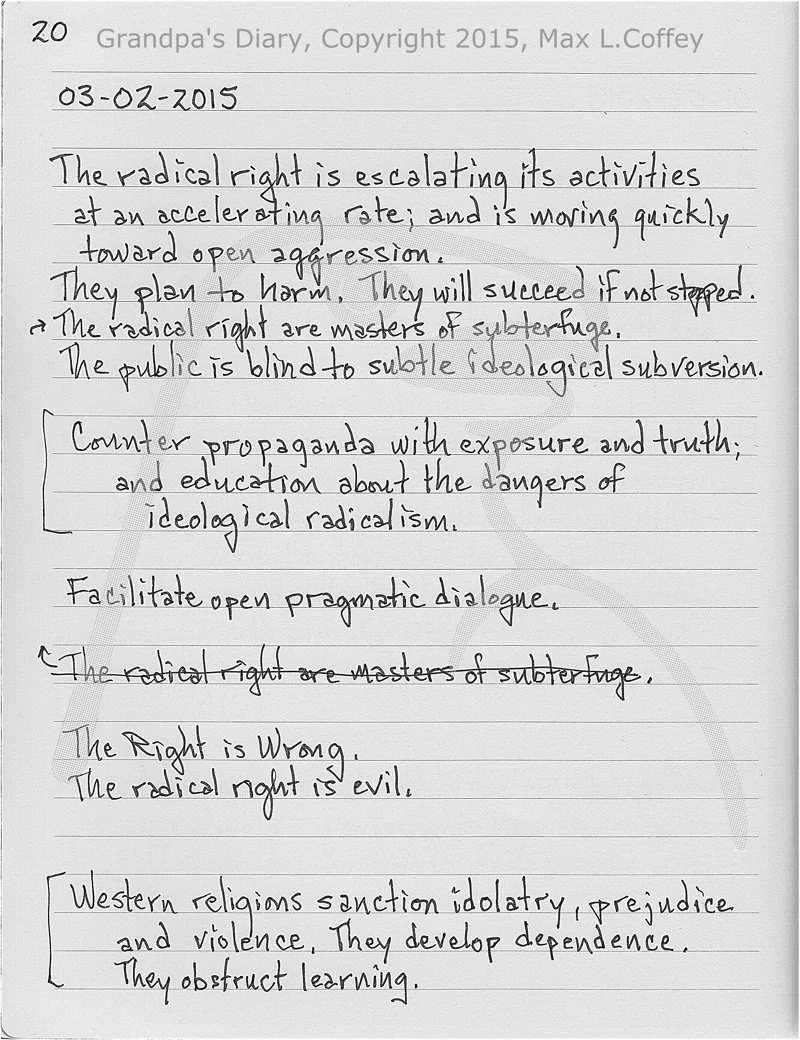 20 Grandpa's Diary, Copyright 2015, Max L.Coffey
03-02-2015
The radical right is escalating its activities
at an accelerating rate; and is moving quickly
toward open aggression.
They plan to harm. They will succeed if not stopped.
The radical right are masters of subterfuge.
The public is blind to subtle ideological subversion.
Counter propaganda with exposure and truth;
and education about the dangers of
ideological radicalism.
Facilitate open pragmatic dialogue.
The radical right are masters of subterfuge.
The Right is Wrong.
The radical right is evil.
Western religions sanction idolatry, prejudice
and violence. They develop dependence.
They obstruct learning.